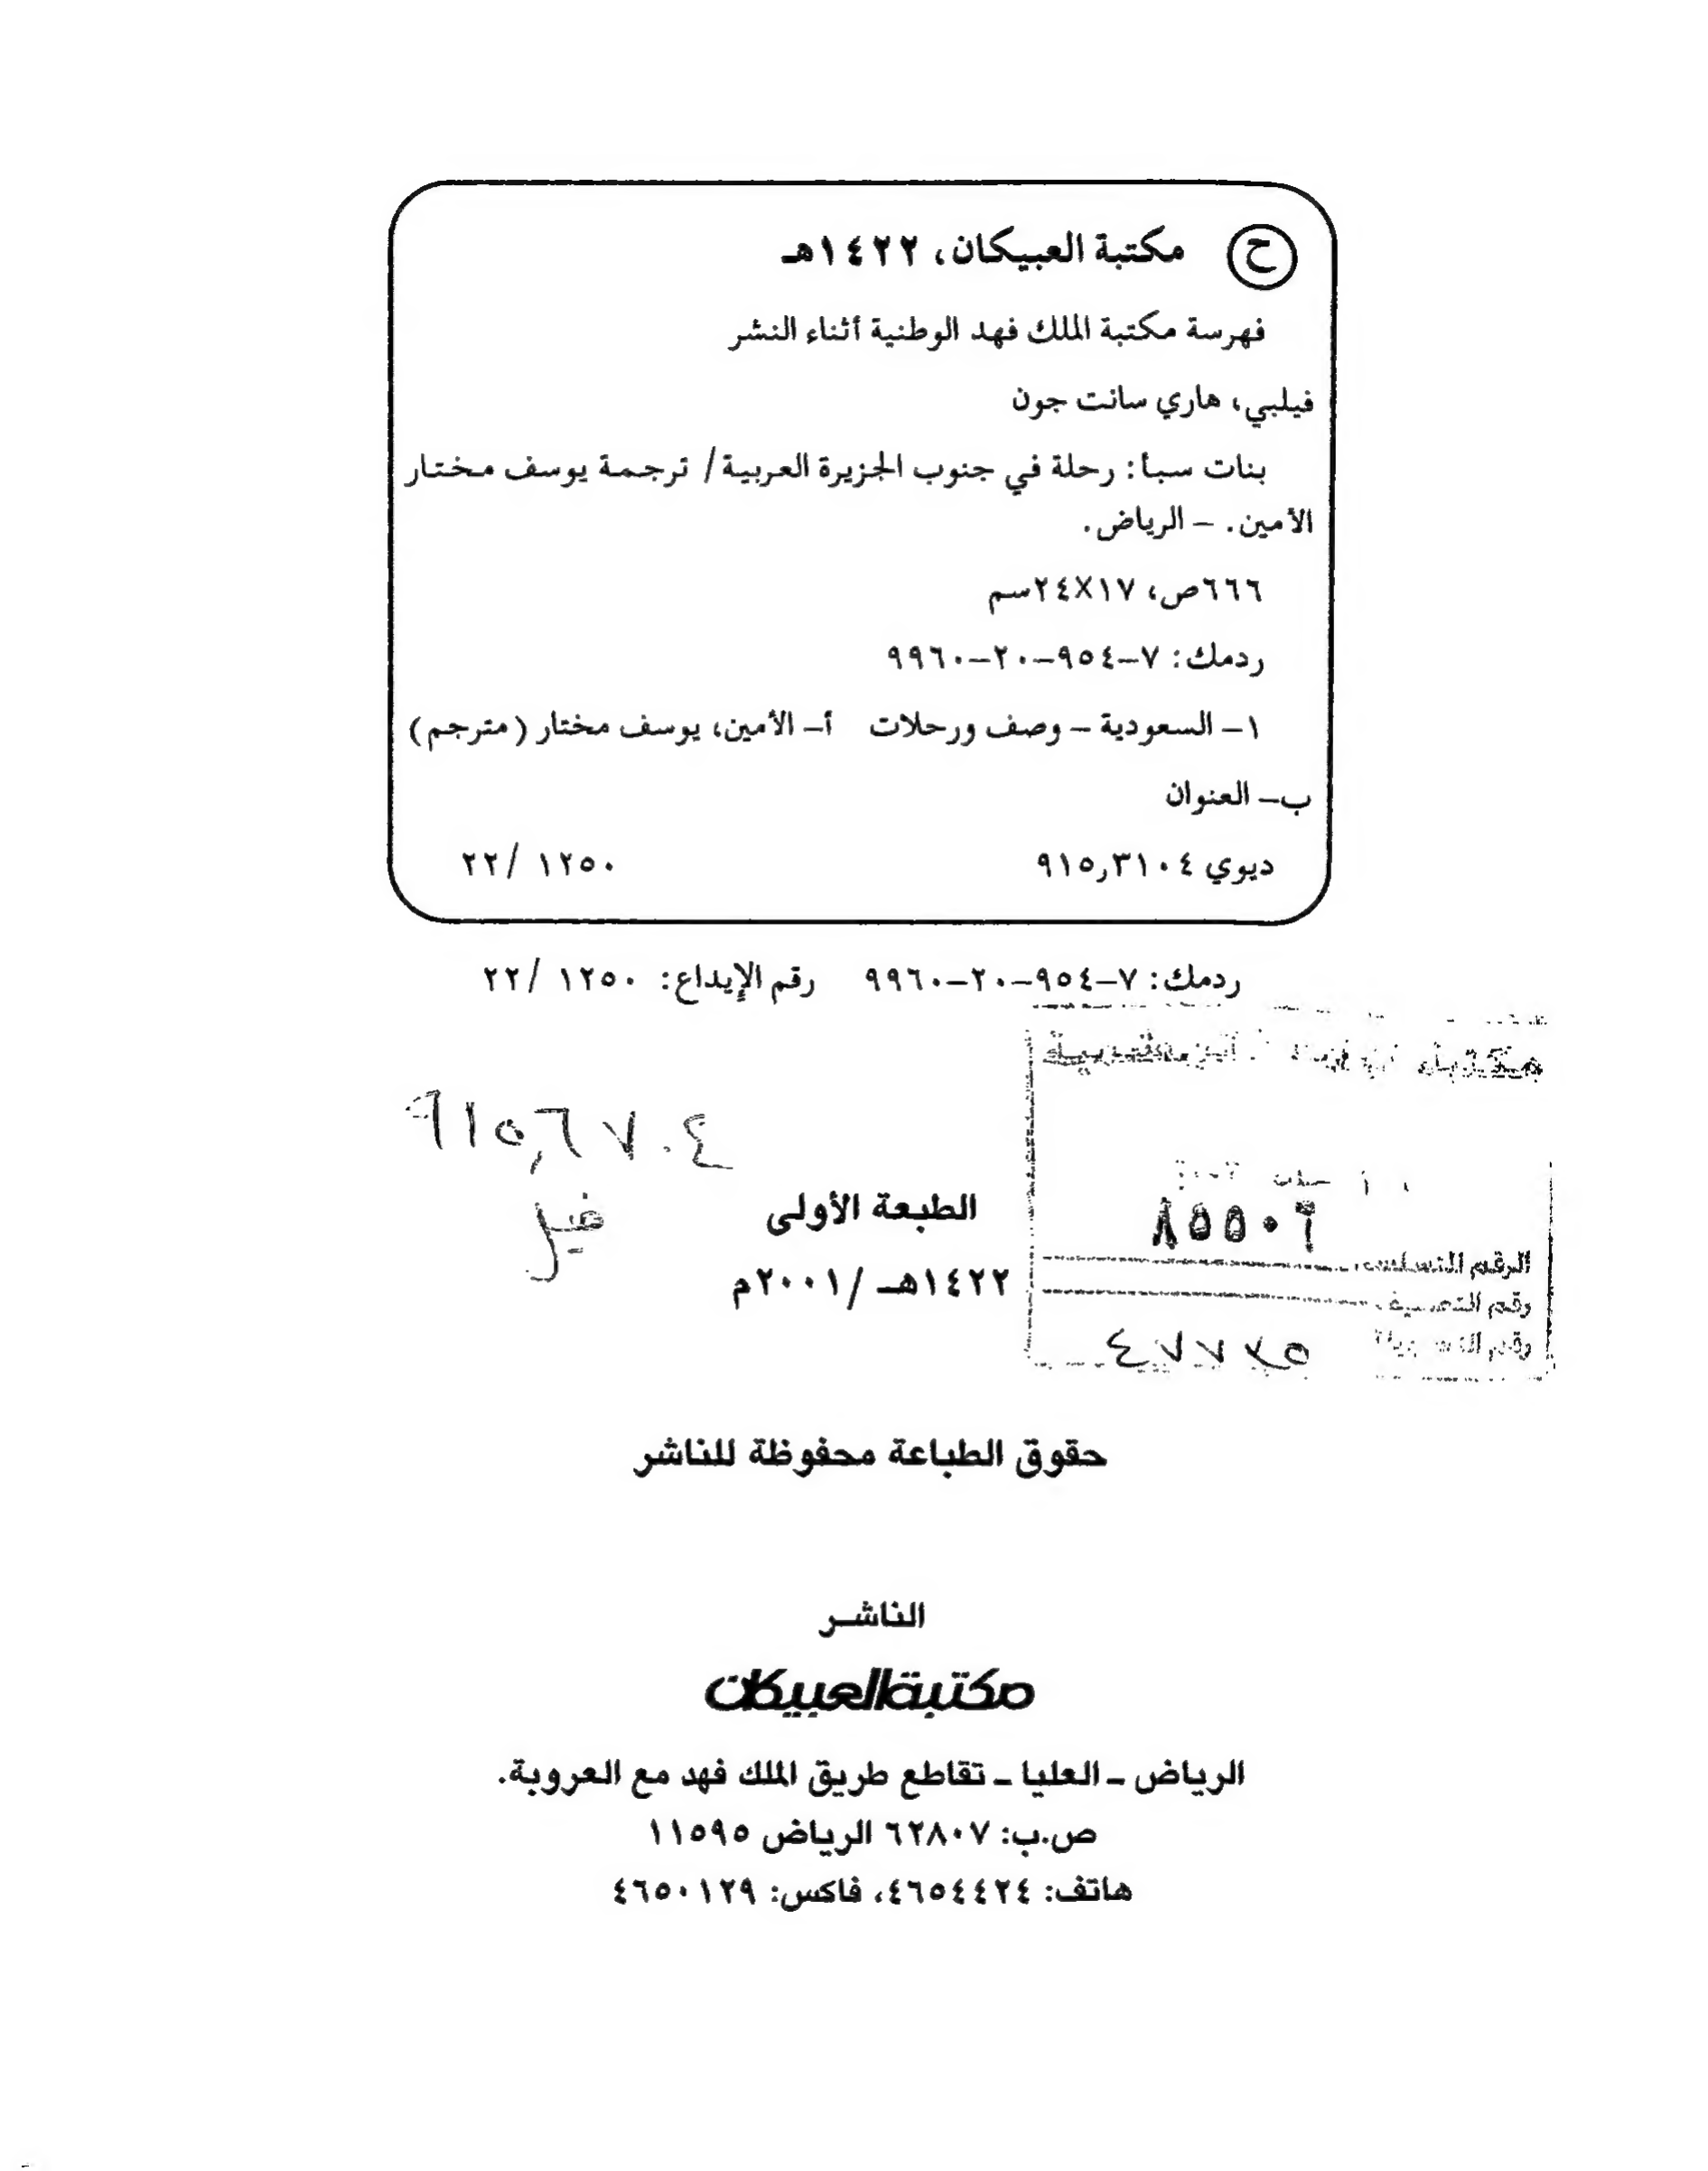 ح مكتبة العبيكان، ١٤٢٢هـ
فهرسة مكتبة الملك فهد الوطنية أثناء النشر
فيلبي، هاري سانت جون
بنات سبأ: رحلة في جنوب الجزيرة العربية/ ترجمة يوسف مختار
الأمين. – الرياض.
٦٦٦ص، ١٧×٢٤سم
ردمك: ٧–٩٥٤–٢٠–٩٩٦٠
١– السعودية – وصف ورحلات أ– الأمين، يوسف مختار (مترجم)
ب– العنوان
ديوي ٩١٥٫٣١٠٤ ١٢٥٠ /٢٢
ردمك: ٧–٩٥٤–٢٠–٩٩٦٠ رقم الإيداع: ١٢٥٠ /٢٢
مكتبة
٨٥٥٠٦
الرقم
رقم
رقم
فيل
الطبعة الأولى
١٤٢٢هـ /٢٠٠١م
حقوق الطباعة محفوظة للناشر
الناشر
مكتبة العبيكان
الرياض ـ العليا ـ تقاطع طريق الملك فهد مع العروبة.
ص.ب: ٦٢٨٠٧ الرياض ١١٥٩٥
هاتف: ٤٦٥٤٤٢٤، فاكس: ٤٦٥٠١٢٩